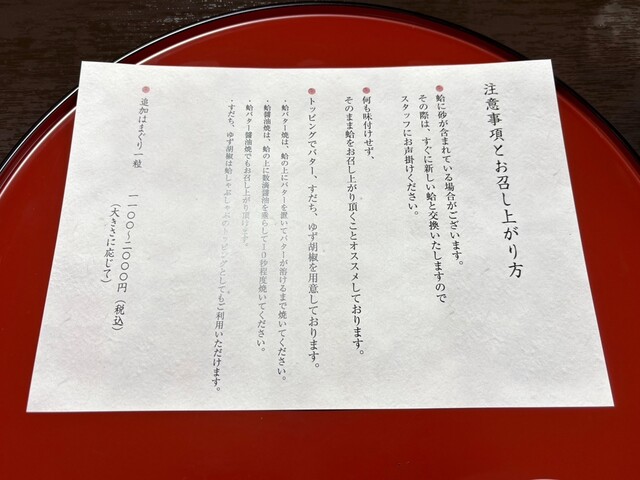 注意事項とお召し上がり方
蛤に砂が含まれている場合がございます。
その際は、すぐに新しい蛤と交換いたしますので
スタッフにお声掛けください。
何も味付けせず、
そのまま蛤をお召し上がり頂くことオススメしております。
トッピングでバター、すだち、ゆず胡椒を用意しております。
・蛤バター焼は、蛤の上にバターを置いてバターが溶けるまで焼いてください。
・蛤醤油焼は、蛤の上に数滴醤油を垂らして10秒程度焼いてください。
・蛤バター醤油焼でもお召し上がり頂けます。
・すだち、ゆず胡椒は蛤しゃぶしゃぶのトッピングとしてもご利用いただけます。
追加はまぐり一粒
一一〇〇〜二〇〇〇円(税込)
(大きさに応じて)